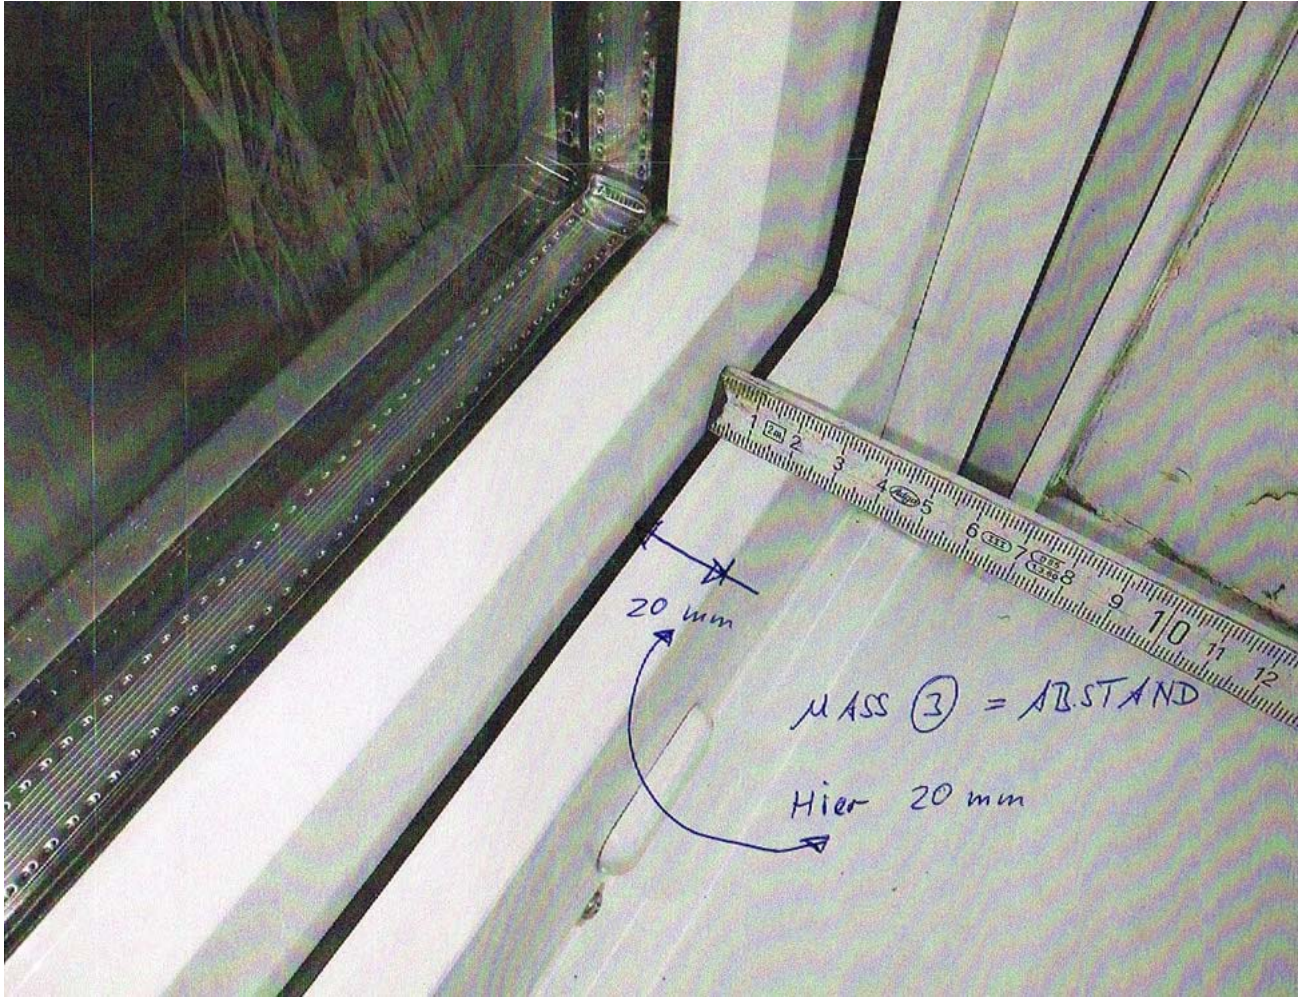 1 2m 2 3 4 5 6 7 8 9 10 11 12
20 mm
MASS 3 = ABSTAND
Hier 20 mm